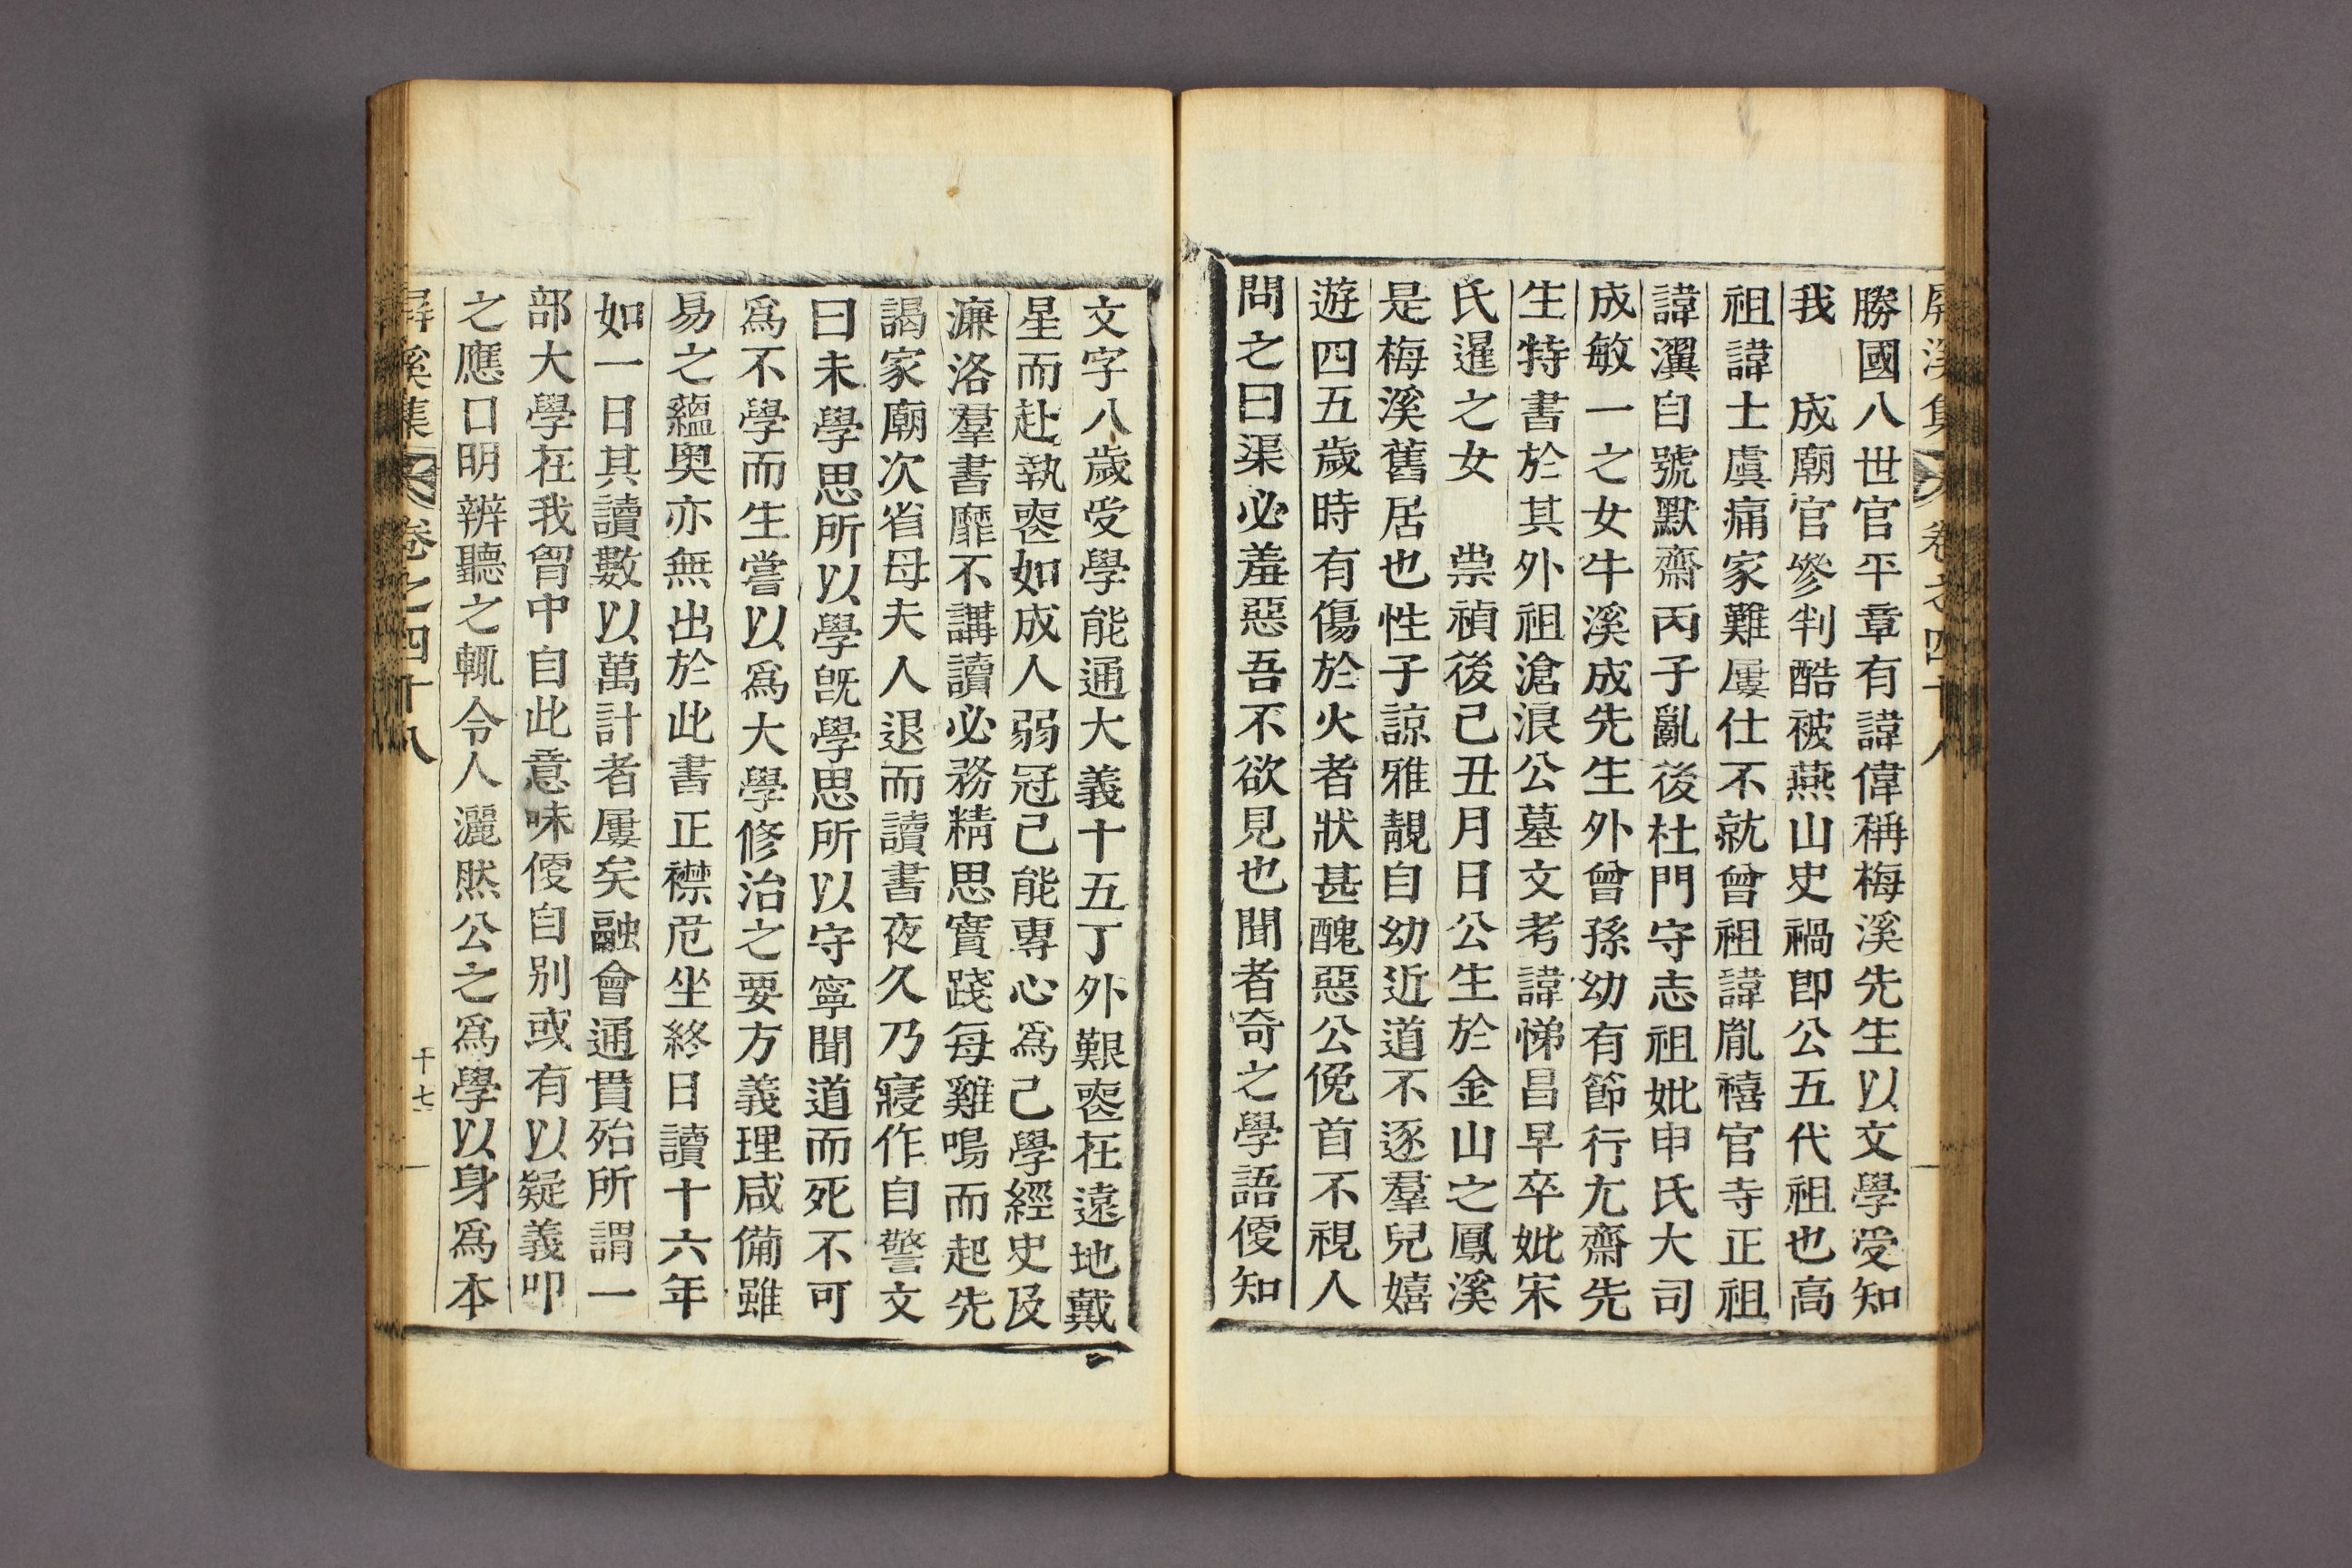 屛溪集 卷之四十八
勝國八世官平章有諱偉稱梅溪先生以文學受知
我 成廟官參判酷被燕山史禍卽公五代祖也高
祖諱士虞痛家難屢仕不就曾祖諱胤禧官寺正祖
諱瀷自號默齋丙子亂後杜門守志祖妣申氏大司
成敏一之女牛溪成先生外曾孫幼有節行尤齋先
生特書於其外祖滄浪公墓文考諱悌昌早卒妣宋
氏暹之女 崇禎後己丑月日公生於金山之鳳溪
是梅溪舊居也性子諒雅靚自幼近道不逐羣兒嬉
遊四五歲時有傷於火者狀甚醜惡公俛首不視人
問之曰渠必羞惡吾不欲見也聞者奇之學語便知
文字八歲受學能通大義十五丁外艱喪在遠地戴
星而赴執喪如成人弱冠己能專心爲己學經史及
濂洛羣書靡不講讀必務精思實踐每雞鳴而起先
謁家廟次省母夫人退而讀書夜久乃寢作自警文
曰未學思所以學旣學思所以守寧聞道而死不可
爲不學而生嘗以爲大學修治之要方義理咸備雖
易之蘊奧亦無出於此書正襟危坐終日讀十六年
如一日其讀數以萬計者屢矣融會通貫殆所謂一
部大學在我胷中自此意味便自別或有以疑義叩
之應口明辨聽之輒令人灑然公之爲學以身爲本
屛溪集 卷之四十八 十七